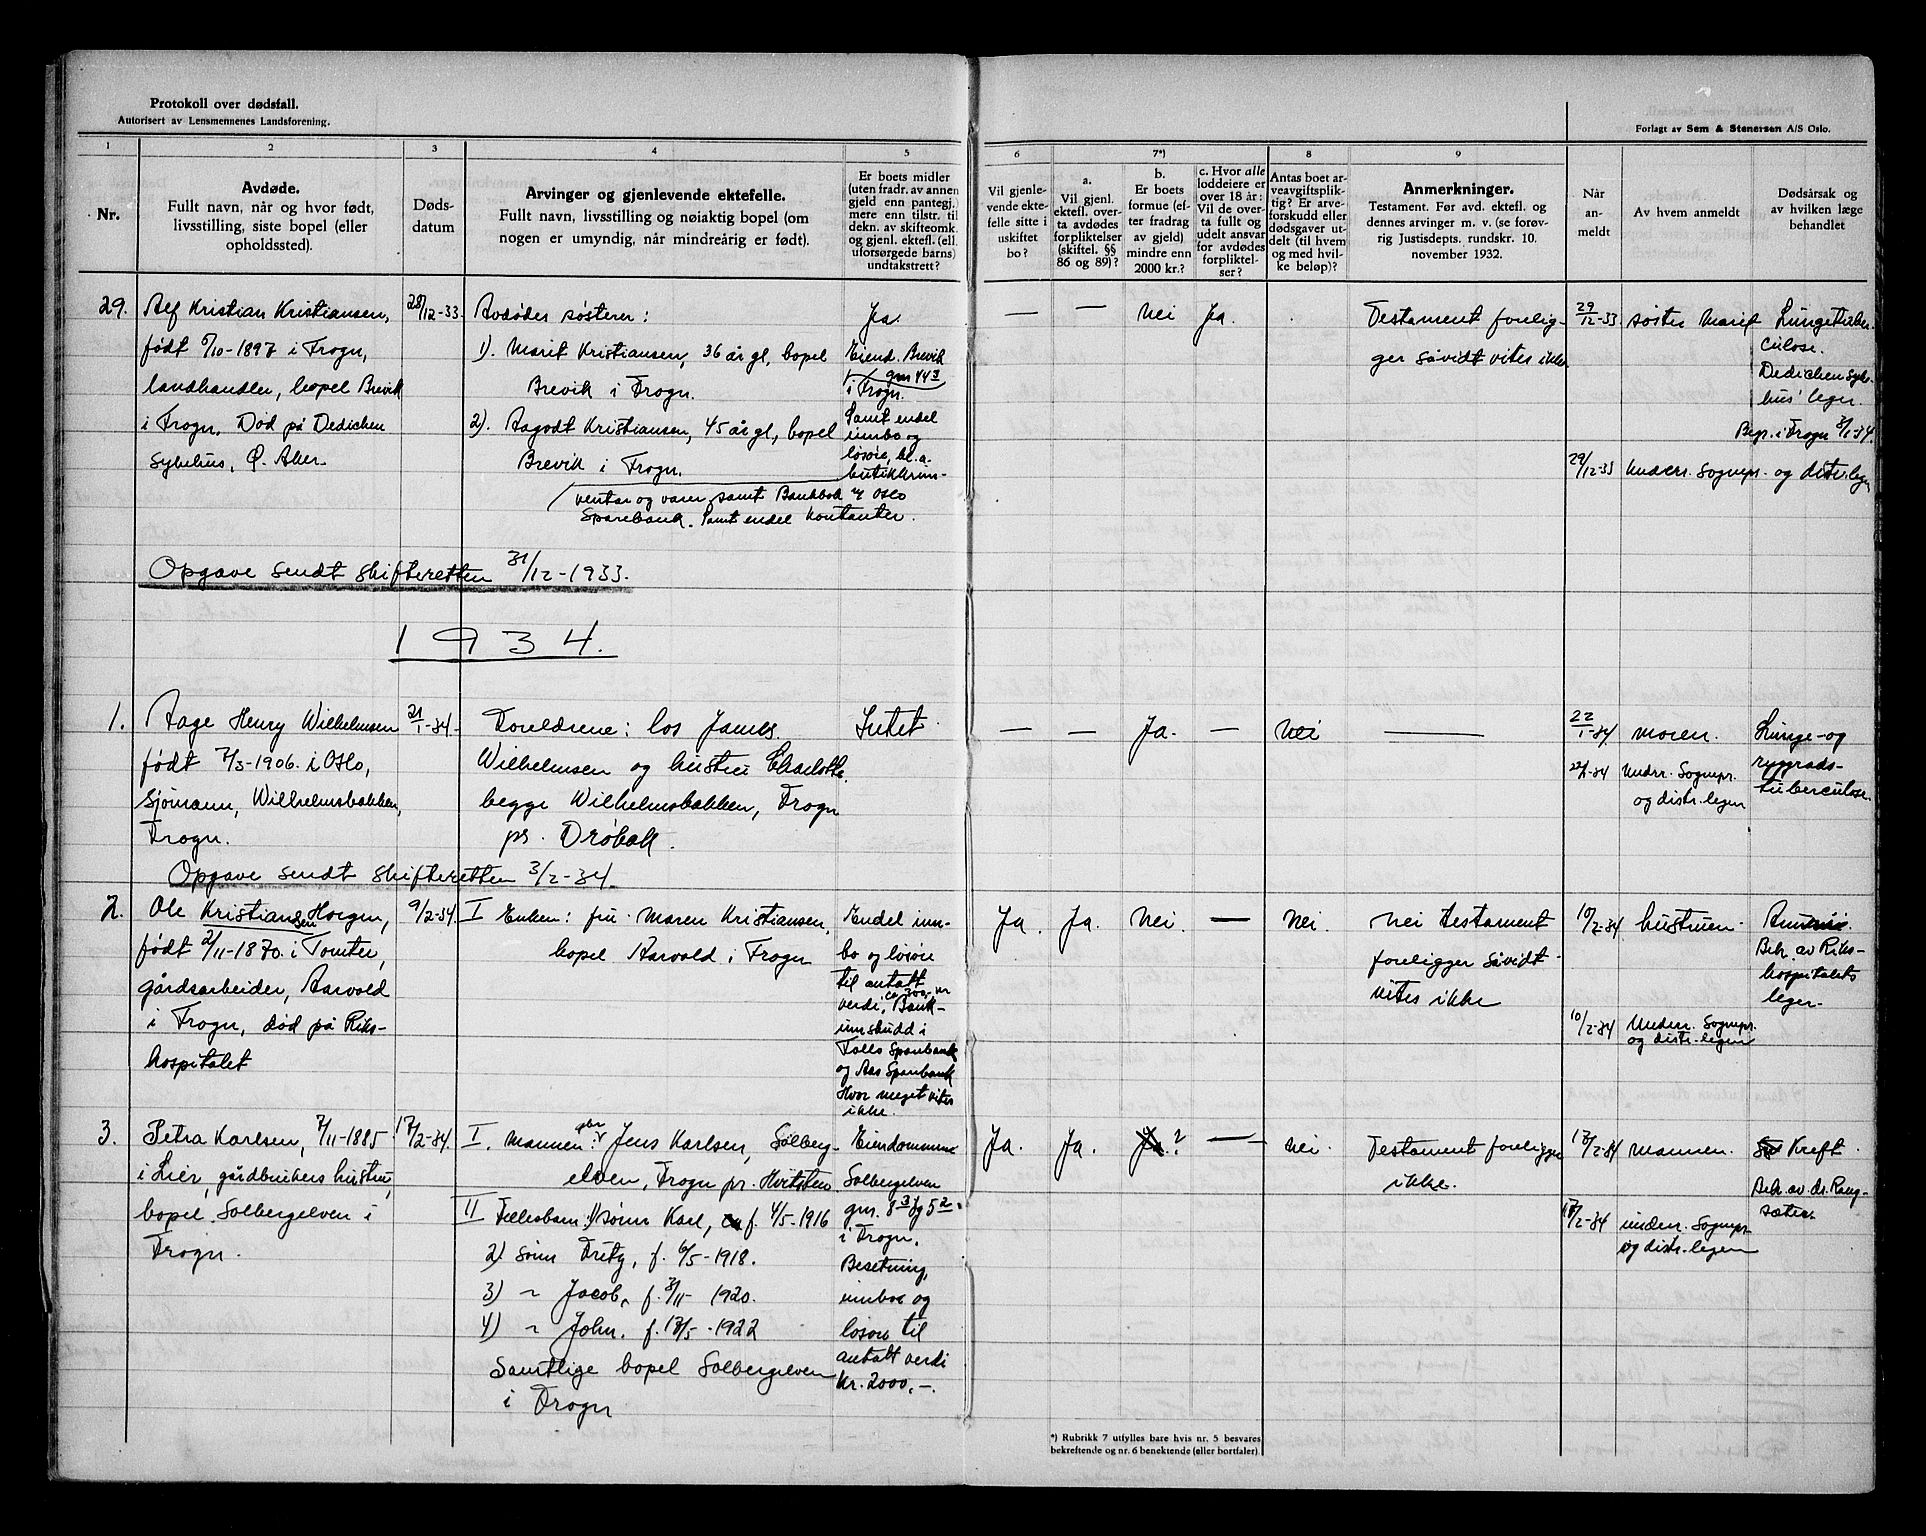 Protokoll over dødsfall.
Autorisert av Lensmennenes Landsforening.
Forlagt av Sem & Stenersen A/S Oslo.
1
2
3
4
5
6
7*)
8
9
Nr.
Avdøde.
Fullt navn, når og hvor født,
livsstilling, siste bopel (eller
opholdssted).
Døds-
datum
Arvinger og gjenlevende ektefelle.
Fullt navn, livsstilling og nøiaktig bopel (om
nogen er umyndig, når mindreårig er født).
Er boets midler
(uten fradr. av annen
gjeld enn pantegj.)
mere enn tilstr. til
dekn. av skifteomk.
og gjenl. ektefl. (ell.
uforsørgede barns)
undtakstrett?
Vil gjenle-
vende ekte-
felle sitte i
uskiftet
bo?
a.
Vil gjenl.
ektefl. over-
ta avdødes
forpliktelser
(skiftel. §§
86 og 89)?
b.
Er boets
formue (ef-
ter fradrag
av gjeld)
mindre enn
2000 kr.?
c. Hvor alle
loddeiere er
over 18 år:
Vil de over-
ta fullt og
udelt ansvar
for avdødes
forpliktel-
ser?
Antas boet ar-
veavgiftsplik-
tig? Er arve-
forskudd eller
dødsgaver ut-
delt (til hvem
og med hvil-
ke beløp)?
Anmerkninger.
Testament. Før avd. ektefl. og
dennes arvinger m. v. (se forøv-
rig Justisdepts. rundskr. 10.
november 1932.
Når
an-
meldt
Av hvem anmeldt
Dødsårsak og
av hvilken læge
behandlet
29.
Alf Kristian Kristiansen,
født 6/10-1897 i Frogn,
landhandler, bopel Brevik
i Frogn. Død på Dedichen
Sykehus, Ø. Aker.
28/12-33.
Avdødes søstrer:
1). Marit Kristiansen, 36 år gl, bopel
Brevik i Frogn.
2). Aagodt Kristiansen, 45 år gl, bopel
Brevik i Frogn.
Ja.
Eiend. Brevik
gnr 44 3
i Frogn.
Samt endel
innbo og
løsøre, bl. a.
butikkinn-
ventar og varer samt Bankbok i Oslo
Sparebank. Samt endel kontanter.
—
—
Nei
Ja.
Testament forelig-
ger såvidt vites ikke
29/12-33
søster Marit
Lungetuber-
culose.
Dedichen Syke-
hus' leger.
Begr. i Frogn 3/1-34.
29/12-33 Underr. Sognepr. og distr. legen
Opgave sendt skifteretten 31/12-1933.
1934.
1.
Aage Henry Wilhelmsen
født 7/3-1906. i Oslo,
Sjømann, Wilhelmsbakken,
Frogn.
21/1-34.
Foreldrene: los James
Wilhelmsen og hustru Charlotte.
begge Wilhelmsbakken, Frogn
pr. Drøbak.
Intet.
—
—
Ja.
—
Nei
—
22/1-34
moren.
22/1-34 Underr. Sognepr.
og distr. legen
Lunge- og
rygrads-
tuberculose.
Opgave sendt skifteretten 3/2-34.
2.
Ole Kristiansen Horgen,
født 2/11-1870. i Tomter,
gårdsarbeider, Aarvold
i Frogn, død på Riks-
hospitalet
9/2-34.
I Enken: fru Maren Kristiansen,
bopel Aarvold i Frogn
Endel inn-
bo og løsøre
til antatt
verdi, ca 300,- kr
Bank-
innskudd i
Follo Sparebank
og Aas Sparebank
Hvor meget vites
ikke.
Ja.
Ja.
Nei.
—
Nei.
Nei testament
foreligger såvidt
vites ikke
10/2-34
hustruen
Beh. av Riks-
hospitalets
leger.
10/2-34 Underr. Sognepr.
og distr. legen
3.
Petra Karlsen, 7/11-1885
i Lier, gårdbrukers hustru,
bopel Solbergelven i
Frogn.
17/2-34.
I. Mannen: gbr Jens Karlsen, Solberg-
elven, Frogn pr. Hvitsten.
II Fellesbarn: 1) sønn Karl, f. 4/5-1916
2) sønn Fritz, f. 6/5-1918.
3) ~ Jacob, f. 3/11-1920.
4) ~ John. f. 13/5-1922
Samtlige bopel Solbergelven
i Frogn
Eiendommen
Solbergelven
gnr. 8 3 og 5 2
i Frogn.
Besetning,
innboe og
løsøre til
antatt verdi
Kr. 2000,-.
Ja.
Ja.
Ja.?
—
Nei.
Testament foreligger
ikke.
17/2-34
mannen.
Kreft.
Beh. av dr. Rang-
sæter.
17/2-34 underr. Sognepr.
og distr. legen
*) Rubrikk 7 utfylles bare hvis nr. 5 besvares
bekreftende og nr. 6 benektende (eller bortfaler).